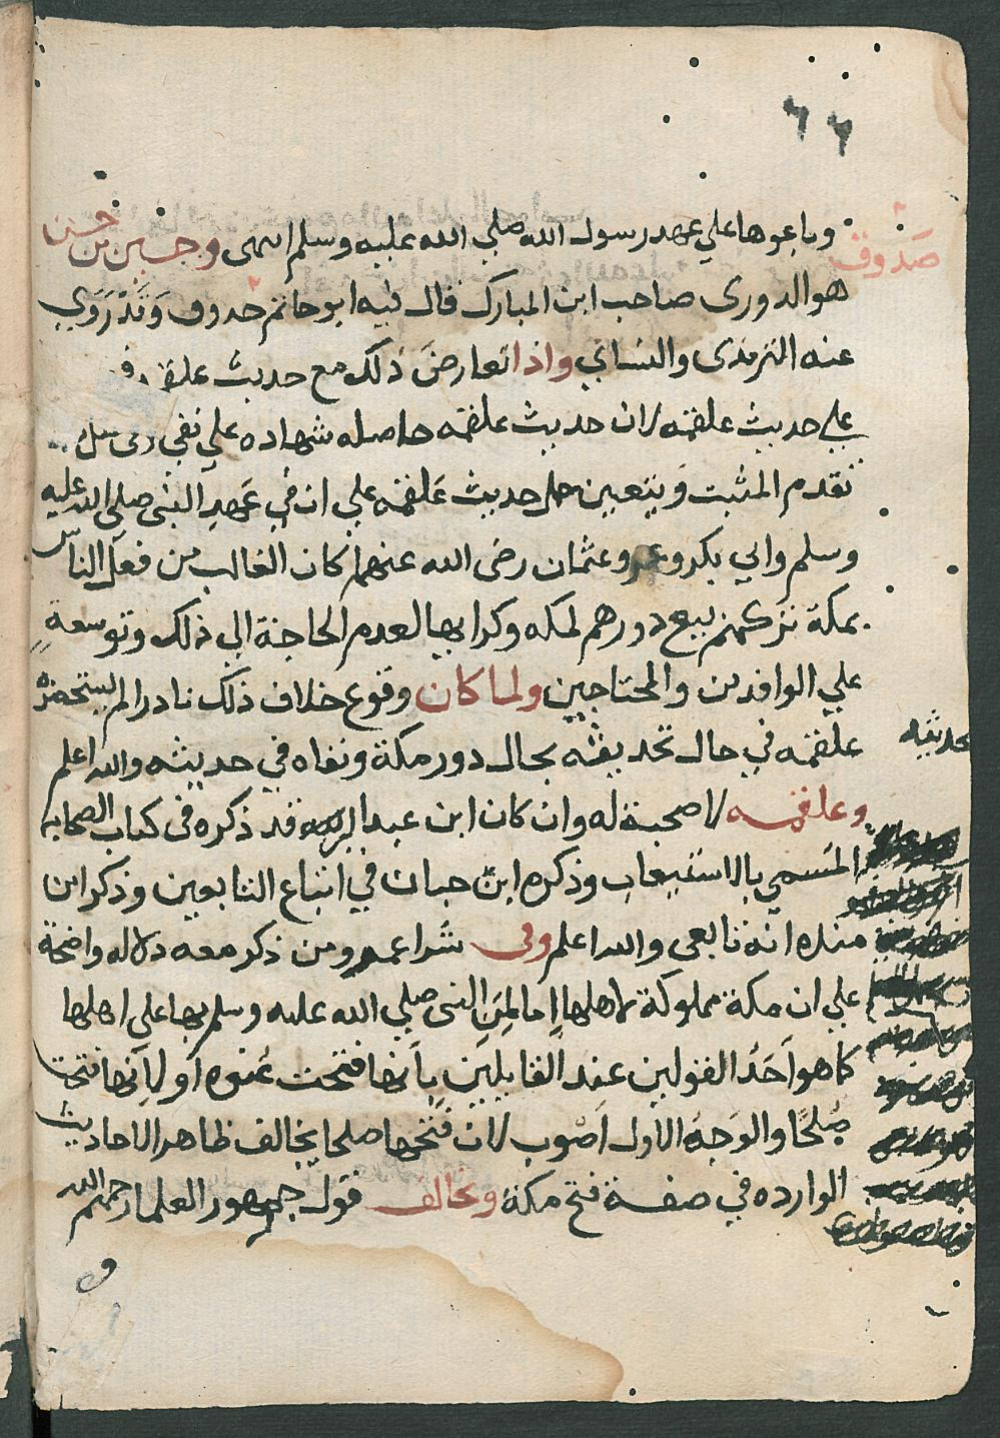 ٦٦
وباعوها علي عهد رسول الله صلي الله عليه وسلم انتهى وحسين بن حسن
صدوق
هو الدورى صاحب ابن المبارك قال فيه ابو حاتم صدوق وَقَدْ رَوَي
عنه الترمذى والنساي واذا تعارضَ ذلك مع حديث علقمة
علي حديث علقمه لان حديث علقمه حاصله شهاده علي نفي
تقدم المثبت وَيتعين حمل حديث عَلقمه علي ان في عَهدِ النبى صلى الله عليه
وسلم وابي بكر وعمر وعثمان رضى الله عنهم كان الغالب من فعل الناس
بمكة تركهم بيع دورهم بمكه وكرايها لعدم الحاجة الي ذلك وتوسعةٍ
علي الوافدين والمحتاجين ولما كان وقوع خلاف ذلك نادرا لم يستحضره
علقمه في حال تحديثه بحال دور مكة ونفاه في حديثه والله اعلم
تحديثه
وعلقمه لا صحبة له وان كان ابن عبد البر قد ذكره فى كتاب الصحابه
المسمي بالاستيعاب وذكره ابن حبان في اتباع التابعين وذكر ابن
منده انه تابعى والله اعلم وفى شراء عمر ومن ذكر معه دلاله واضحة
علي ان مكة مملوكة لاهلها اما لِمَنِّ النبى صلي الله عليه وسلم بها على اهلها
كما هو اَحَدُ القولين عند القايلين بِاَنها فتحت عُنوه او لِاَنها فتحت
صُلحًا والوَجهُ الاول اَصْوب لان فتحها صلحا يخالف ظاهر الاحاديث
الوارده في صفة فتح مكة ويخالف قول جمهور العلما رحمهم الله